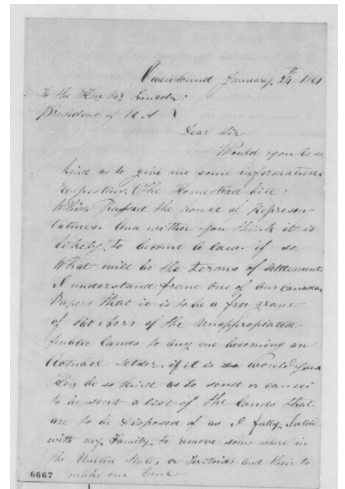 January 24th 1861
To the Hon Lincoln
President of U.S.
Dear Sir
Would you be so
kind as to give me some information
respecting (The Homestead bill)
Which Passed the house of Represen
tatives. And wither you think it is
likely to become a law. if so
What will be the terms of settlement
I understand from one of our canadian
Papers that it is to be a free grant
of 160 Acers of the Unappropiated
publie Lands to any one becoming an
Actuael settler. if it is so would you
Sir be so kind as to send or cause
to be sent a list of the Lands that
are to be Disposed of as I fully Inten
with my Family to remove some where in
the United States or Teritories and their to
make our
6667